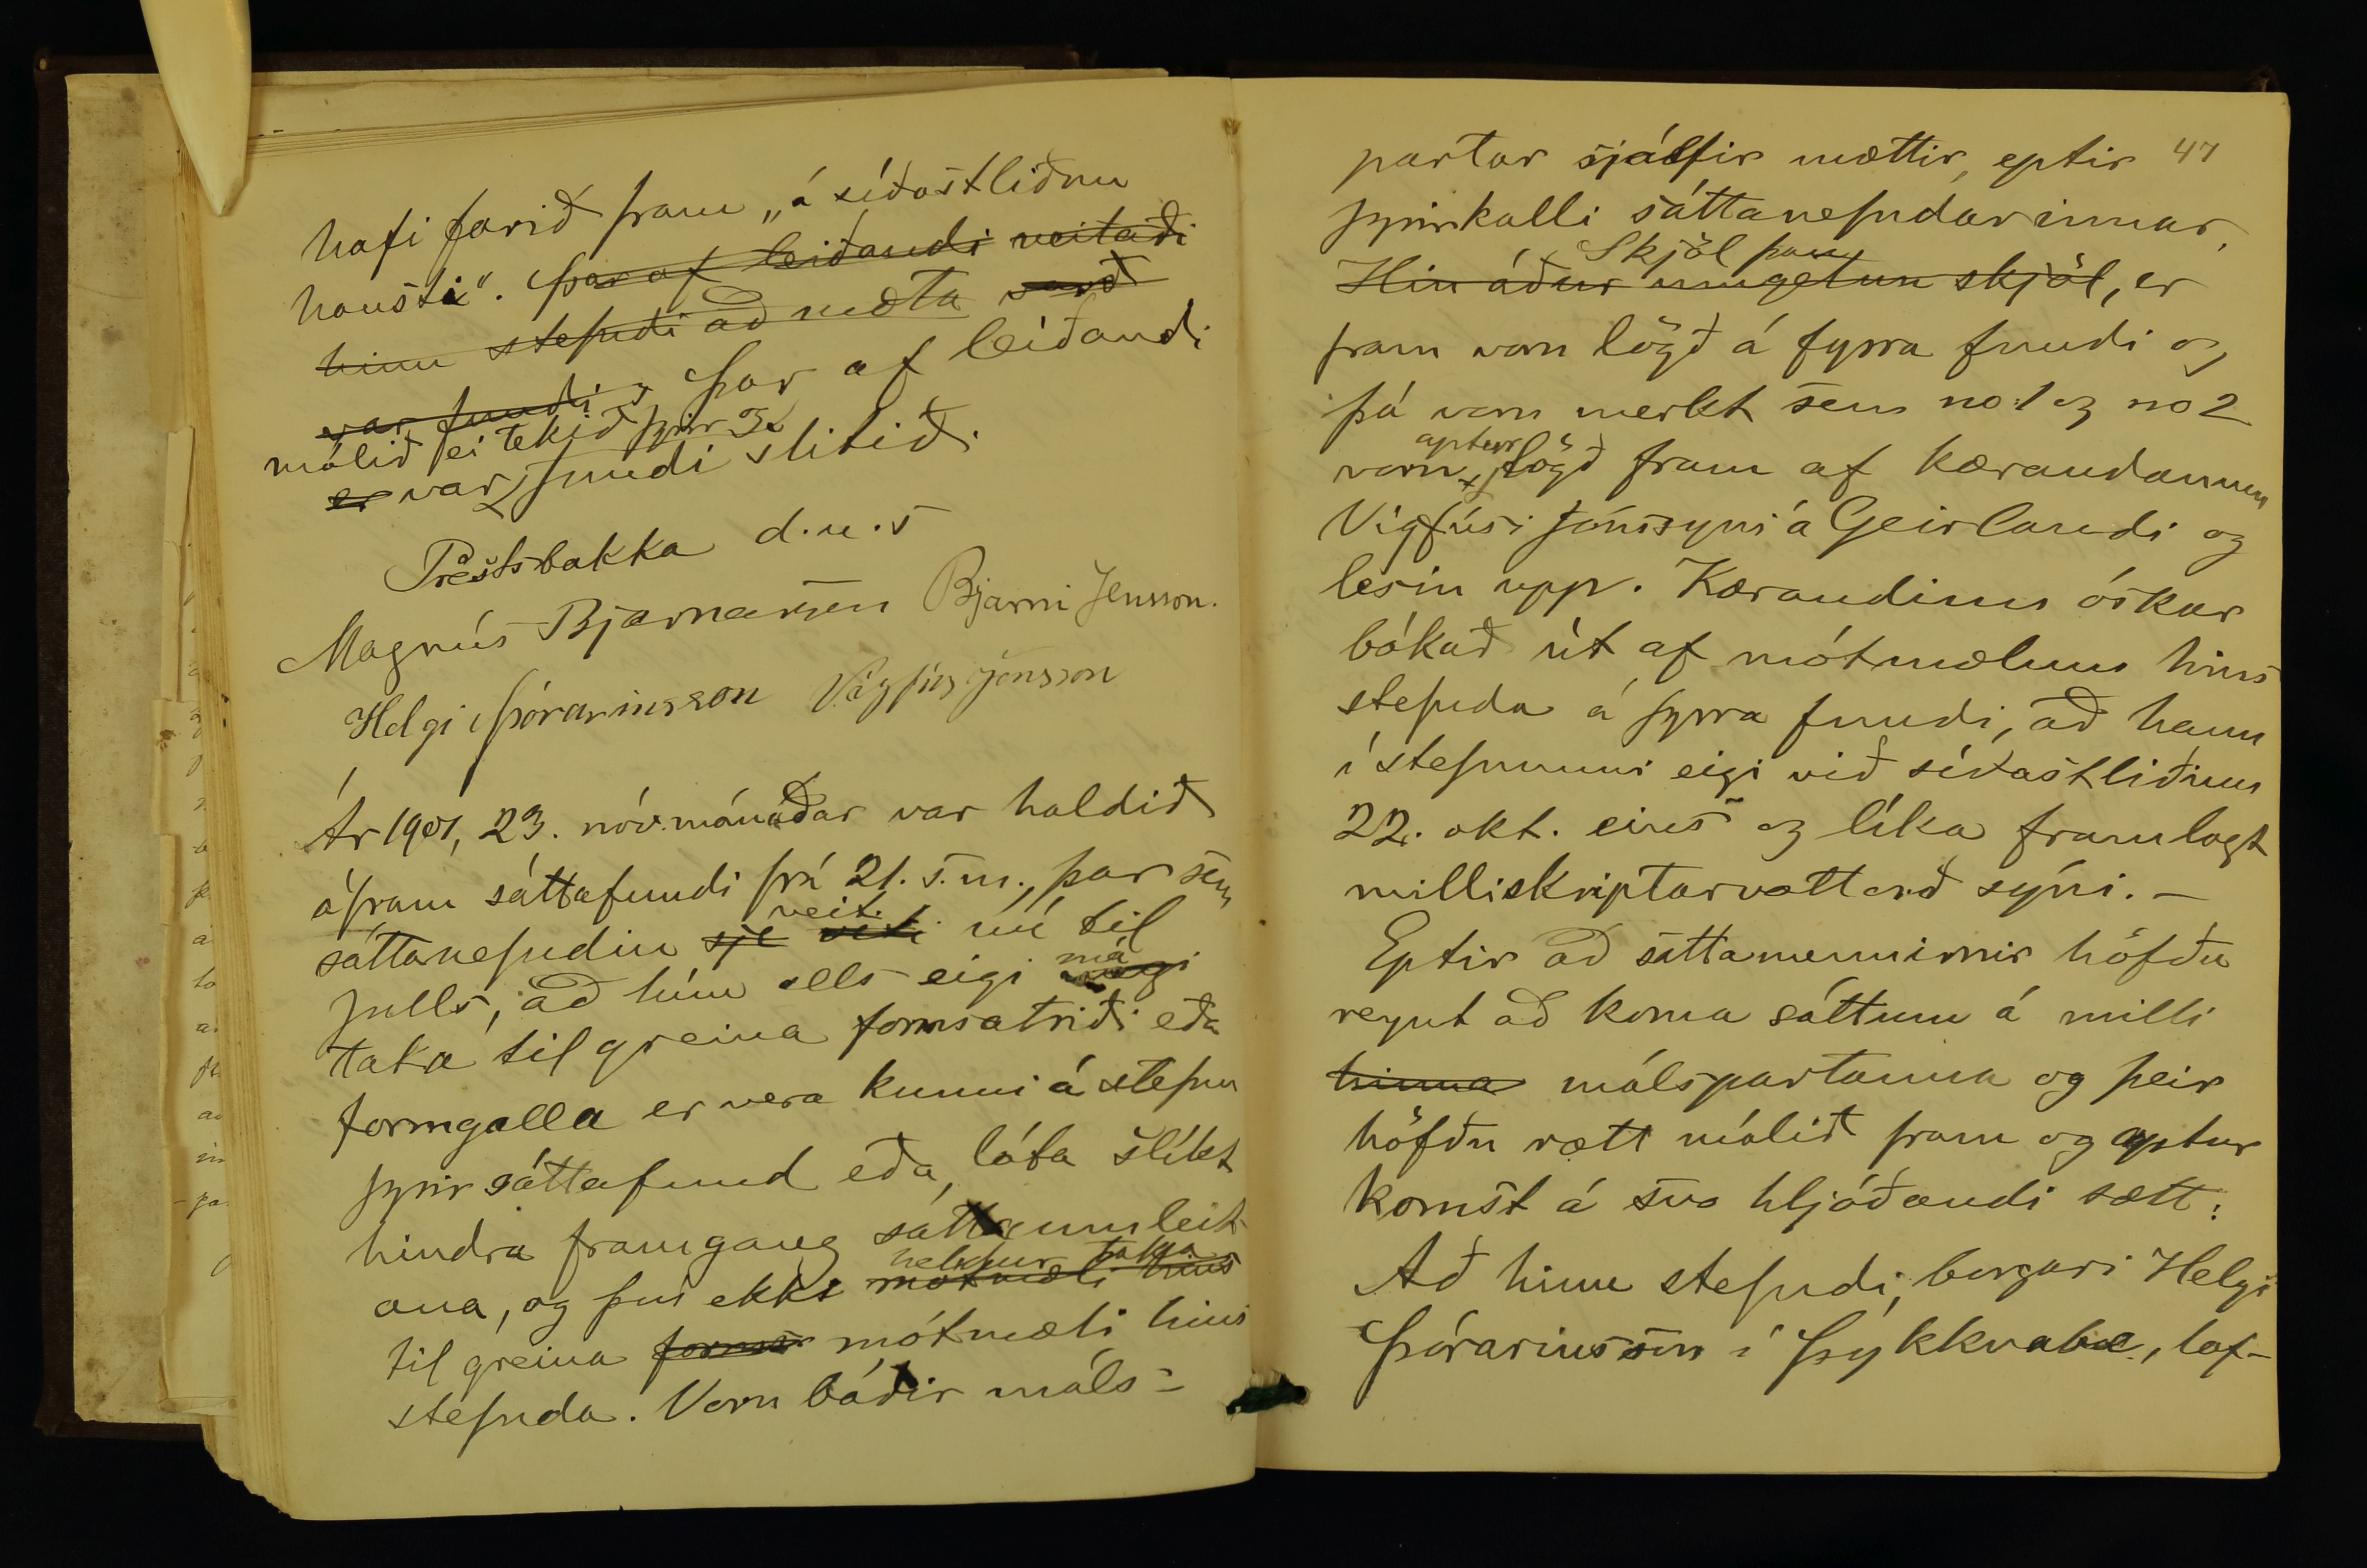 hafi farið fram „á síðastliðnu
hausti“. Þar af leiðandi neitaði
hinn stefndi að mæta varð
var fundi, Þar af leiðandi
málið ei tekið fyrir &
er var fundi slitið.
Prestsbakka d.u.s
Magnús Bjarnarson Bjarni Jensson.
Helgi Þórarinsson Vigfús Jónsson
Ár 1901, 23. nóv.mánaðar var haldið
áfram sáttafundi frá 21. s.m., þar sem
veit
sáttanefndin sje viti nú til
má
fulls, að hún alls eigi megi
taka til greina formsatriði eða
formgalla er vera kunni á stefnu
fyrir sáttafund eða láta slíkt
hindra framgang sáttaumleit-
heldur taka
ana, og því ekki mótmæli hins
til greina forms mótmæli hins
stefnda. Voru báðir máls-
47
partar sjálfir mættir, eptir
fyrirkalli sáttanefndarinnar,
Skjöl þau
Hin áður umgetun skjöl, er
fram voru lögð á fyrra fundi og
þá voru merkt sem no 1 og no 2
aptur
voru lögð fram af kærandanum
Vigfúsi Jónssyni á Geirlandi og
lesin upp. Kærandinn óskar
bókað út af mótmælum hins
stefnda á fyrra fundi, að hann
í stefnunni eigi við síðastliðinn
22. okt. eins og líka framlagt
milliskriptarvottorð sýni. –
Eptir að sáttamennirnir höfðu
reynt að koma sáttum á milli
hinna málspartanna og þeir
höfðu rætt málið fram og aptur
komst á svo hljóðandi sætt:
Að hinn stefndi, borgari Helgi
Þórarinsson í Þykkvabæ, lof-